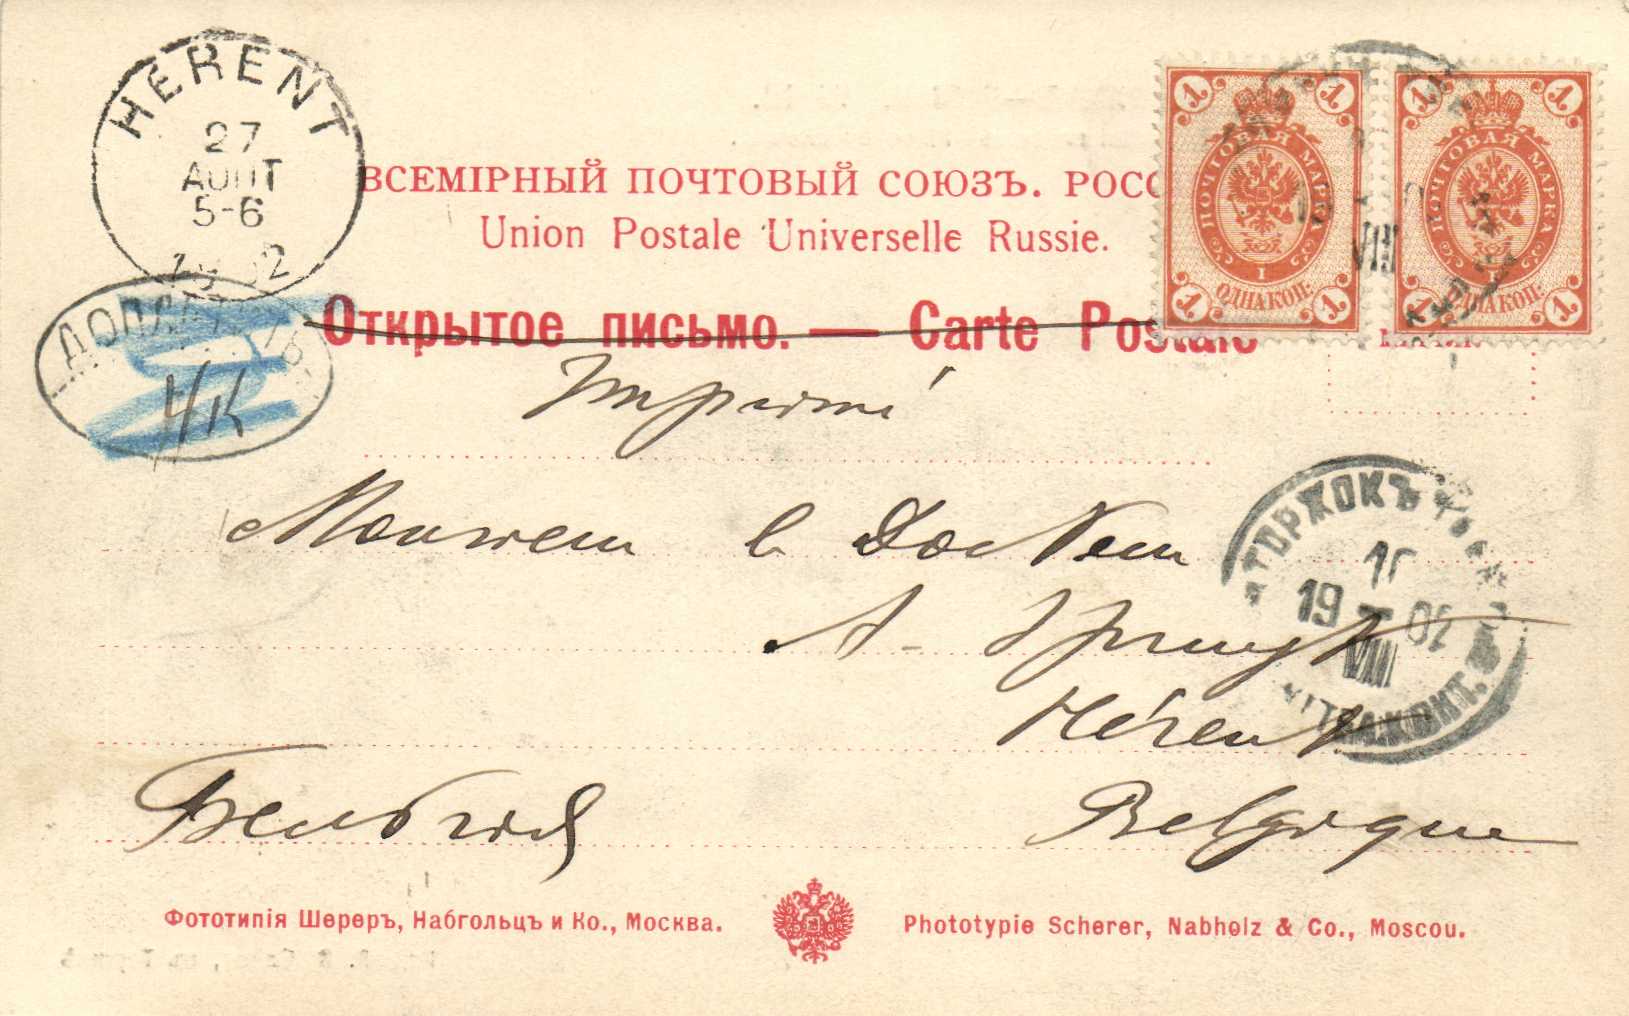 HERENT
27
AOUT
5-6
1902
ВСЕМІРНЫЙ ПОЧТОВЫЙ СОЮЗЪ. РОСС
Union Postale Universelle Russie.
Открытое письмо. — Carte Postale
1 1
ПОЧТОВАЯ МАРКА
1
ОДНА КОП.
1 1
1 1
ПОЧТОВАЯ МАРКА
1
ОДНА КОП.
1 1
VIII
ДОПЛАТИТЬ
4 к
Imprimé
Monsieur le Docteur
A.
Hérent
Бельгія
Belgique
ТОРЖОКЪ
19 02
VIII
ПОЧТ. КОНТ.
Фототипія Шереръ, Набгольцъ и Ко., Москва.
Phototypie Scherer, Nabholz & Co., Moscou.